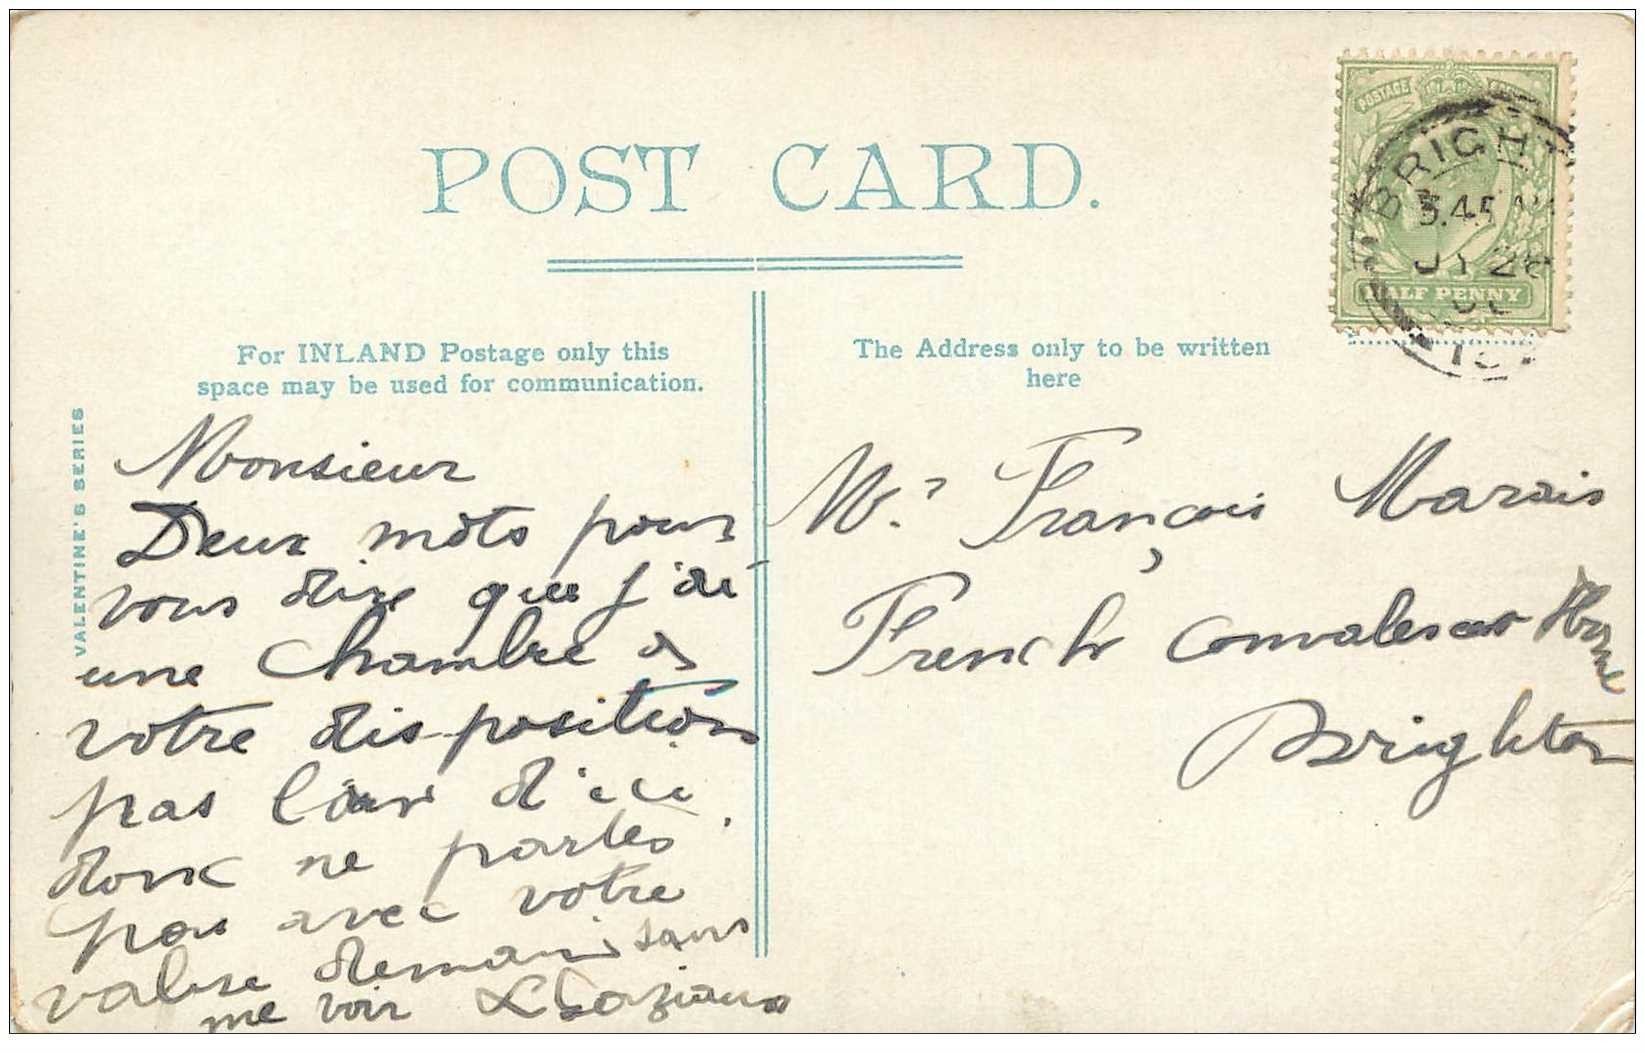 POST CARD.
For INLAND Postage only this
space may be used for communication.
The Address only to be written
here
VALENTINE'S SERIES
POSTAGE
HALF PENNY
BRIGHT
3.45
JY 28
Monsieur
Deux mots pour
vous dire que j'ai
une chambre à
votre disposition
pas loin d'ici
donc ne partes
pas avec votre
valise demain sans
me voir
Mr. François Marais
French Convalescent Home
Brighton